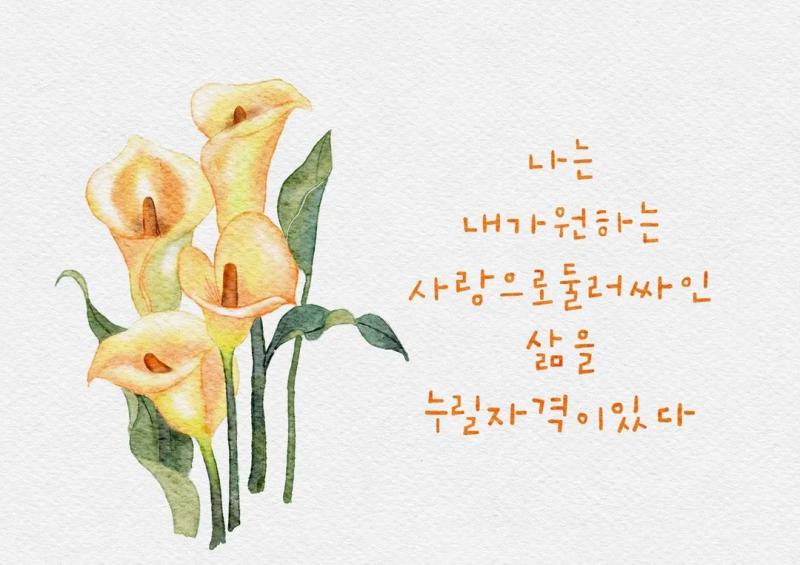 나는
내가원하는
사랑으로둘러싸인
삶을
누릴자격이있다